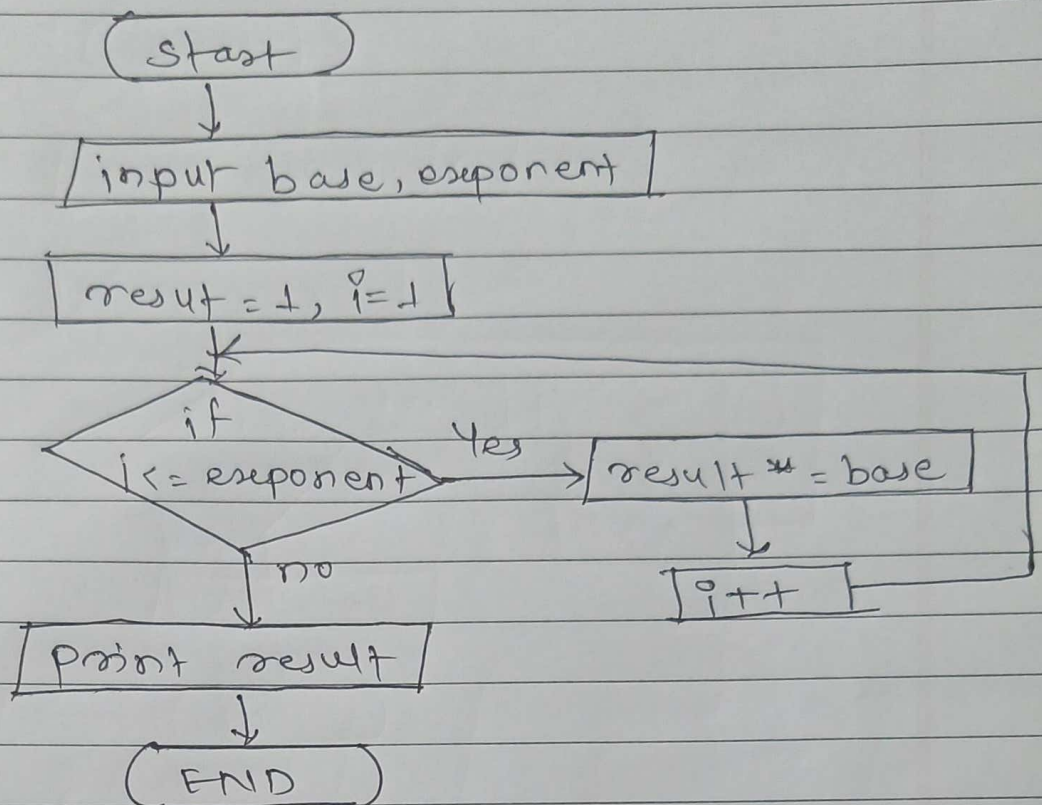 Start
input base, exponent
resut = 1, i=1
if
i<= exponent
Yes
result *= base
no
i++
Print result
END